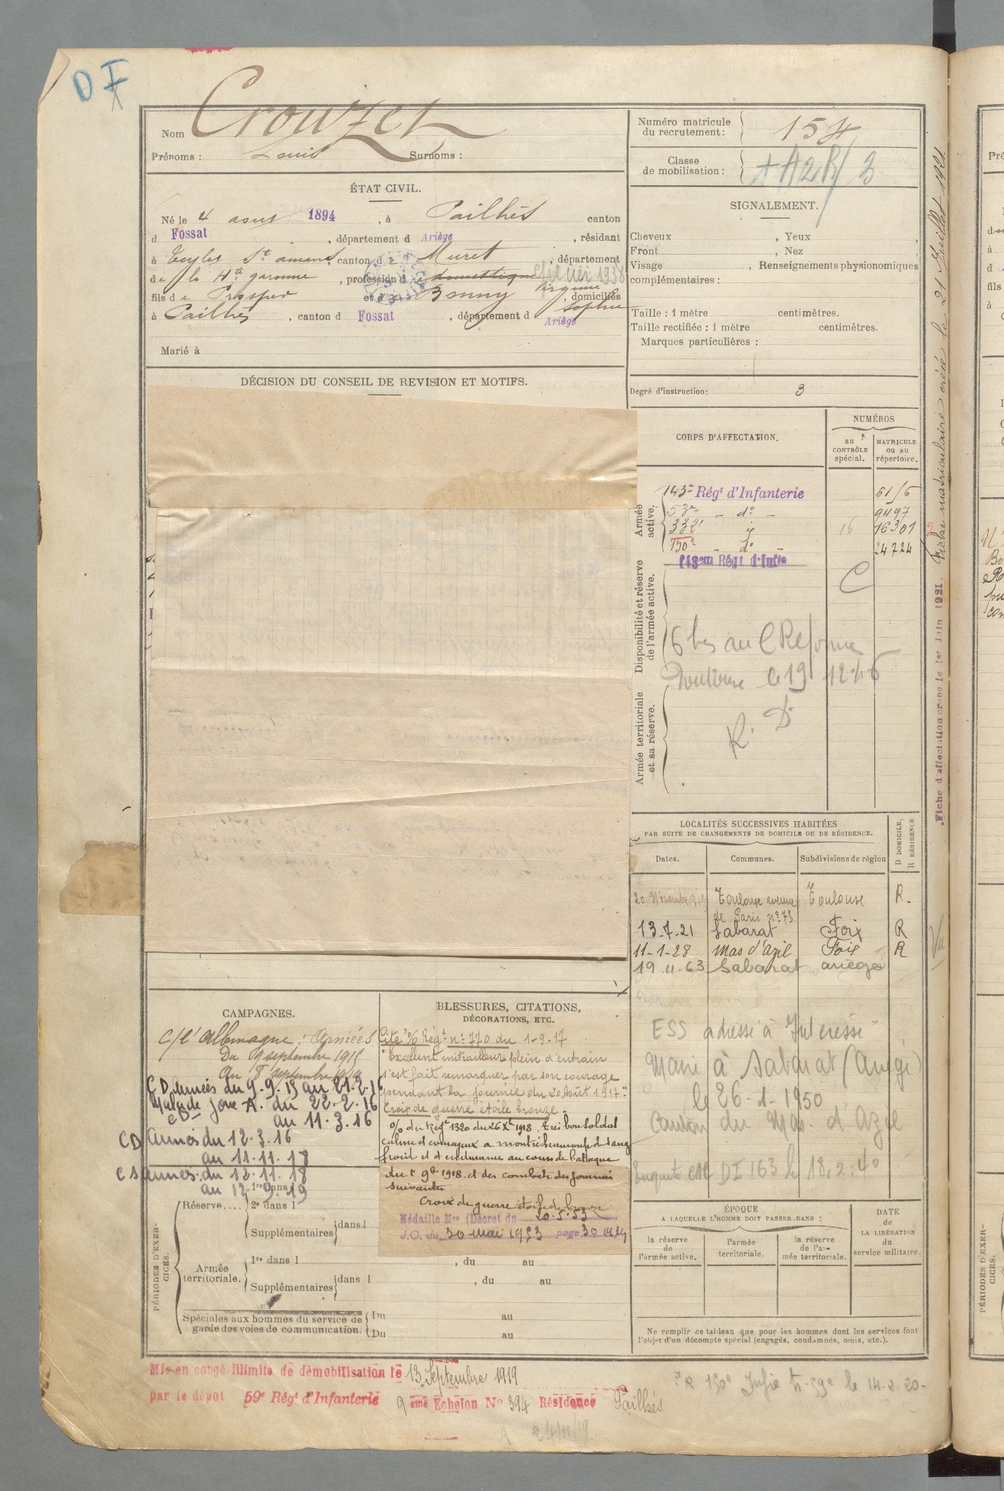 D F
Nom Crouzet
Prénoms : Louis Surnoms :
Numéro matricule
du recrutement : 154
Classe
de mobilisation :
ÉTAT CIVIL.
Né le 4 aout 1894, à Pailhès canton
d Fossat, département d Ariège, résidant
à St amans, canton de Muret, département
de la Hte garonne, profession de domestique
fils de Prosper et de Bonny Sophie, domiciliés
à Pailhès, canton d Fossat, département d Ariège
Marié à
SIGNALEMENT.
Cheveux , Yeux
Front , Nez
Visage , Renseignements physionomiques
complémentaires :
Taille : 1 mètre centimètres.
Taille rectifiée : 1 mètre centimètres.
Marques particulières :
Degré d'instruction : 3
DÉCISION DU CONSEIL DE REVISION ET MOTIFS.
CORPS D'AFFECTATION.
NUMÉROS
au CONTRÔLE spécial.
MATRICULE ou au répertoire.
Armée active.
143e Régt d'Infanterie
53e - do - 9497
332e 16 16301
150e - do - 24724
143eme Régt d'Infie
Disponibilité et réserve de l'armée active.
Armée territoriale et sa réserve.
Toulouse le 19
R. D.
Fiche matriculaire créée le 21 Juillet 1921
Fiche d'affectation créée le 1er Juin 1921.
LOCALITÉS SUCCESSIVES HABITÉES
PAR SUITE DE CHANGEMENTS DE DOMICILE OU DE RÉSIDENCE.
D DOMICILE, R RÉSIDENCE
Dates. Communes. Subdivisions de région
Toulouse avenue Toulouse R.
de Paris no 73
13-7-21 Sabarat Foix R
11-1-28 Mas d'Azil Foix R
19-11-63 Sabarat ariège
ESS adressé à Intéressé
Mairie à Sabarat (Ariège)
le 26-1-1950
Canton du Mas d'Azil
CAMPAGNES.
C/ l'Allemagne : Armées
Du 9 septembre 1915
Au 13 septembre 1919
CD armées du 9.9.15 au 21.2.16
Malade Zone A. du 22.2.16
au 11.3.16
CD Armées du 12.3.16
au 11.11.18
CS armées du 12.11.18
au 12.9.19
BLESSURES, CITATIONS,
DÉCORATIONS, ETC.
Cité o/o Régt no 770 du 1-9-17
"Excellent mitrailleur plein d'entrain
s'est fait remarquer par son courage
pendant la journée du 20 Août 1917."
Croix de guerre étoile bronze.
o/o du Régt 1320 du 26 Xbre 1918. Très bon soldat
calme et courageux a montré beaucoup de sang
froid et d'endurance au cours de l'attaque
du 1er 9bre 1918 et des combats des journées
suivantes
Croix de guerre étoile de bronze
Médaille Mre (Décret du 20-5-33
J.O. du 30 mai 1933 page
PÉRIODES D'EXERCICES.
Réserve.... 1re dans l
2e dans l
Supplémentaires dans l
Armée territoriale. 1re dans l , du au
Supplémentaires dans l , du au
Spéciales aux hommes du service de Du au
garde des voies de communication. Du au
ÉPOQUE
A LAQUELLE L'HOMME DOIT PASSER DANS :
DATE
DE LA LIBÉRATION
du
service militaire.
la réserve de l'armée active.
l'armée territoriale.
la réserve de l'armée territoriale.
Ne remplir ce tableau que pour les hommes dont les services font
l'objet d'un décompte spécial (engagés, condamnés, omis, etc.).
Mis en congé illimité de démobilisation le 13 Septembre 1919
par le dépôt 59e Régt d'Infanterie
9ème Echelon No 394 Résidence Pailhès